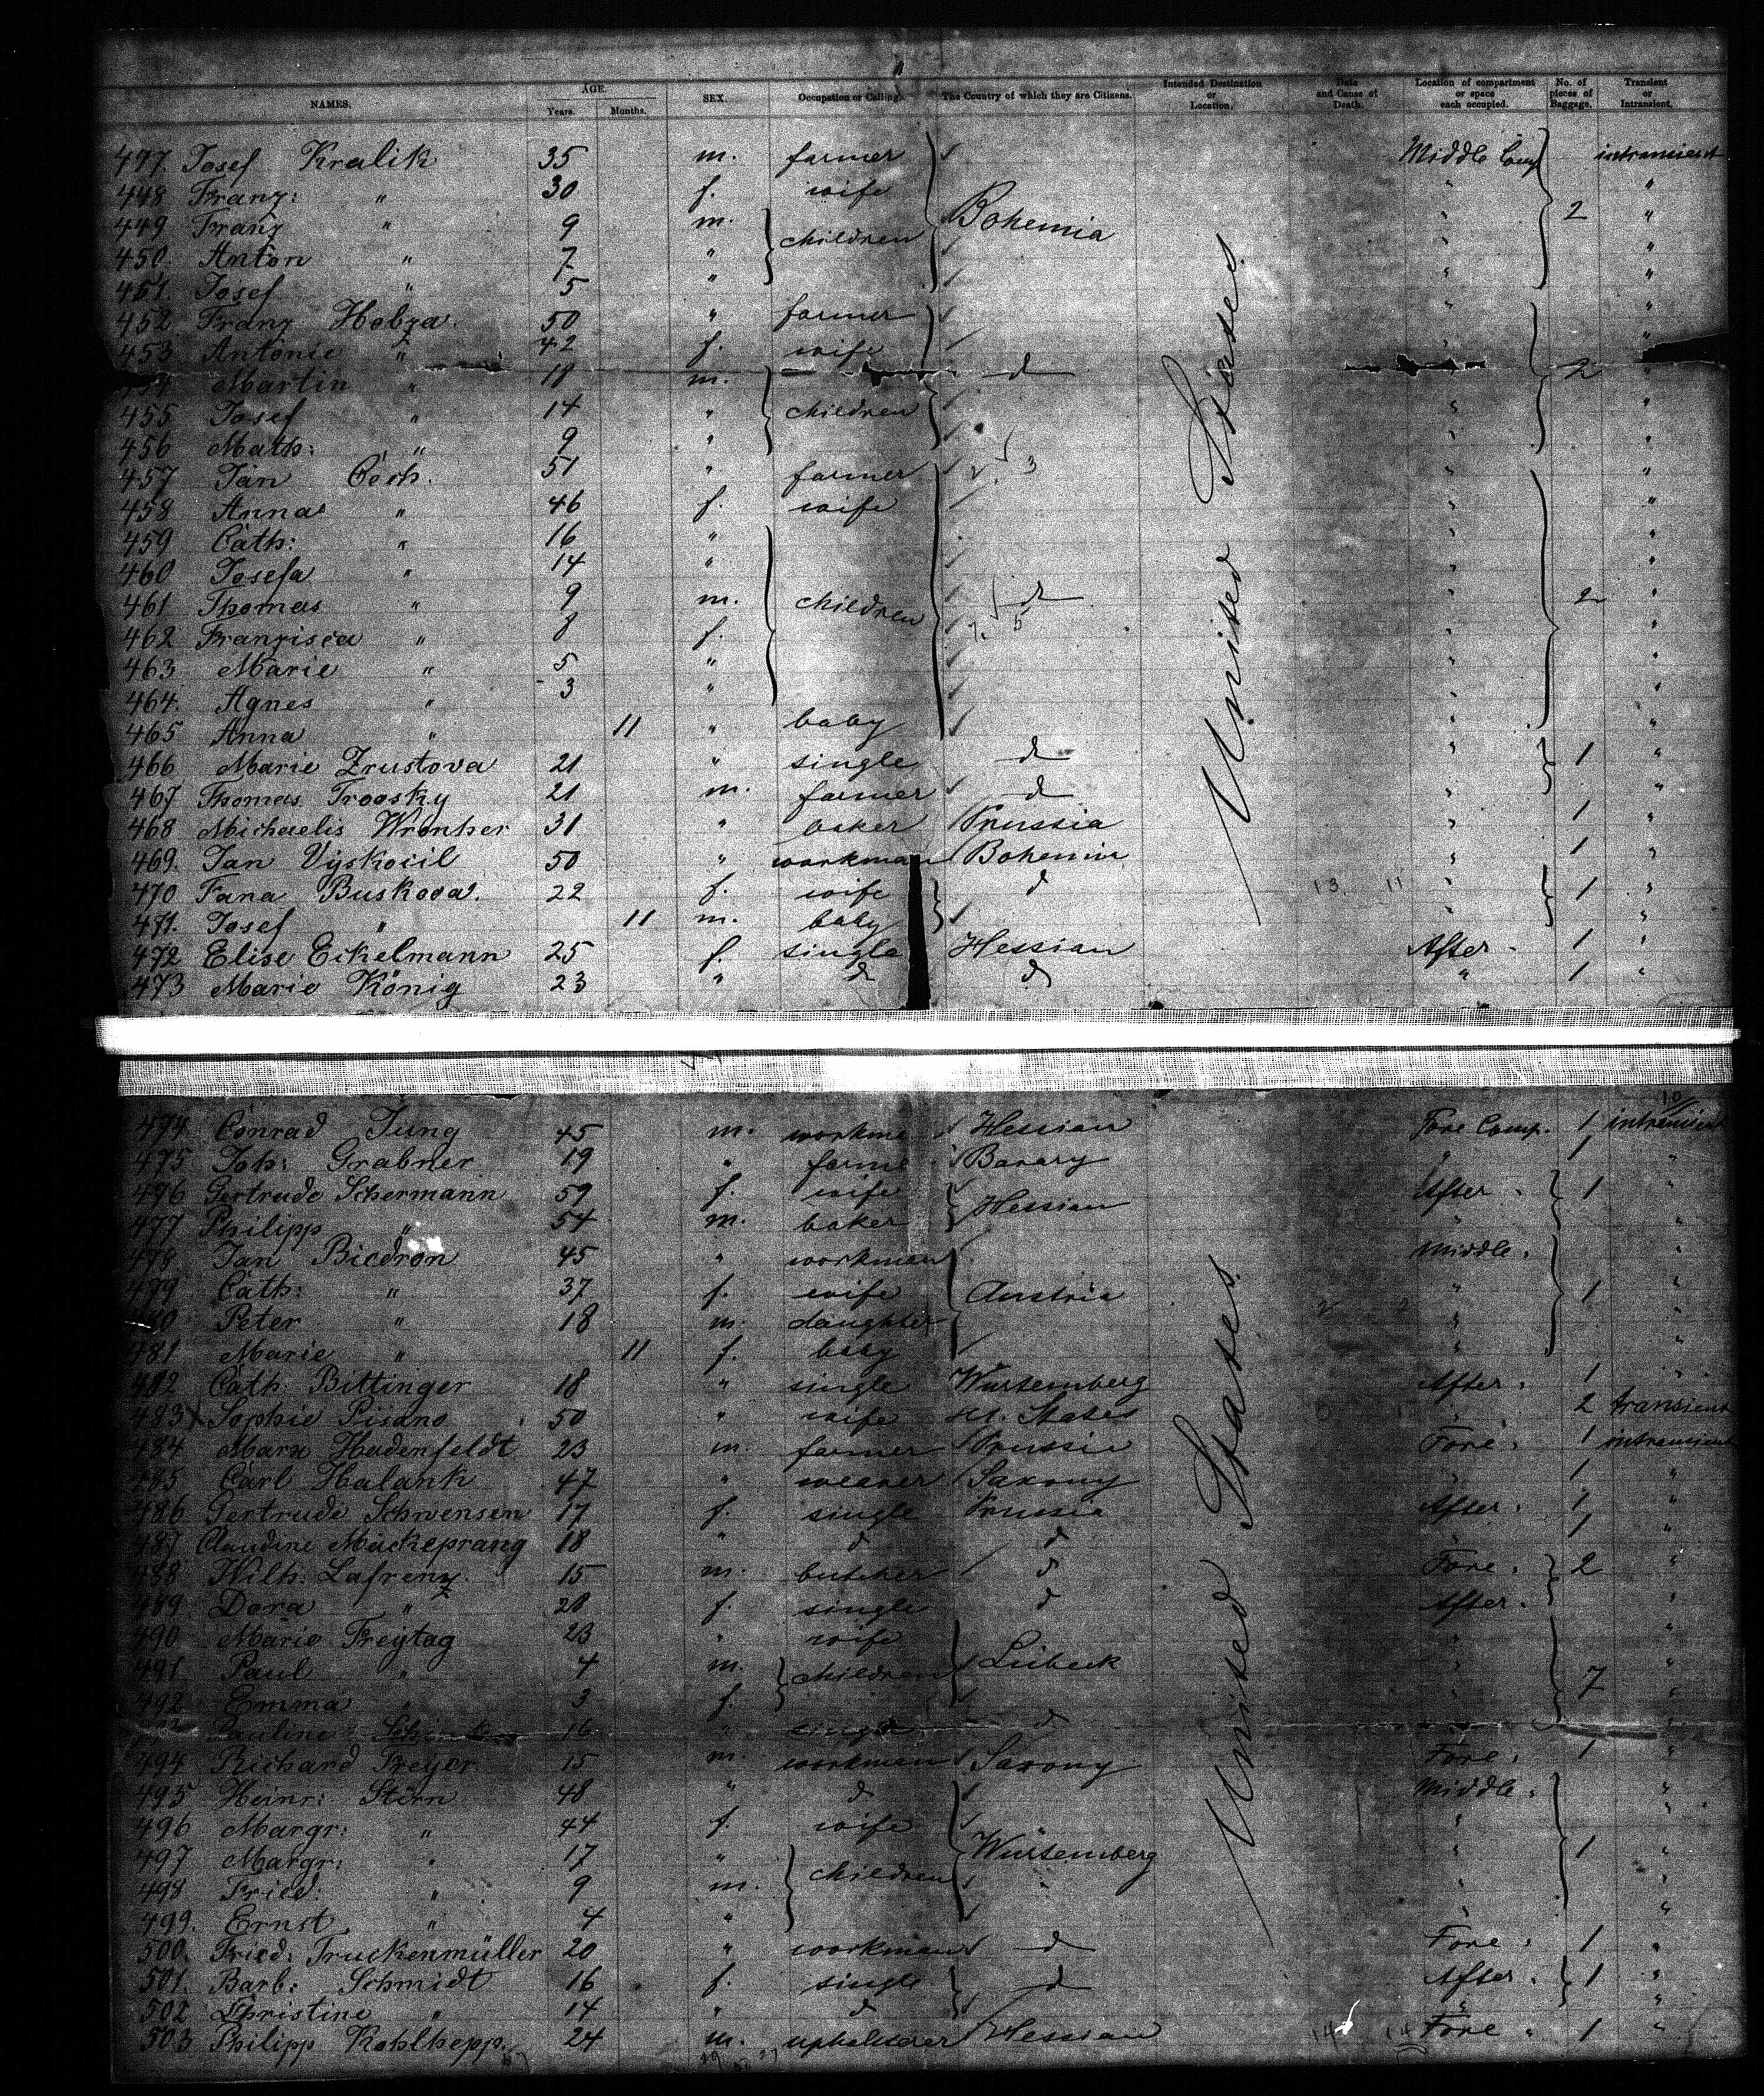 NAMES. AGE. Years. Months. SEX. Occupation or Calling. The Country of which they are Citizens. Intended Destination or Location. Date and Cause of Death. Location of compartment or space each occupied. No. of pieces of Baggage. Transient or Intransient.
447. Josef Kralik 35 m. farmer Middle Comp intransient
448 Franz: " 30 f. wife " "
449 Franz " 9 m. children Bohemia " 2 "
450. Anton " 7 " " "
451. Josef " 5 " " "
452 Franz Hobza. 50 " farmer " "
453 Antonie " 42 f. wife " "
Martin " m. d 2 "
455 Josef " 14 " children " "
456 Math: " 9 " " "
457 Jan Cech. 51 " farmer 3 " "
458 Anna " 46 f. wife " "
459 Cath: " 16 " " "
460 Josefa " 14 " " "
461 Thomas " 9 m. children d " 2 "
462 Franzisca " 8 f. 5 " "
463 Marie " 5 " " "
464. Agnes " 3 " " "
465 Anna " 11 " baby " "
466 Marie Zrustova 21 " single d " 1 "
467 Thomas Troosky 21 m. farmer d " "
468 Michaelis Wronker 31 " baker Prussia " 1 "
469. Jan Vyskocil 50 " workman Bohemia " 1 "
470 Fana Buskova. 22 f. wife d 13. 11 " 1 "
471. Josef " 11 m. baby " "
472 Elise Eikelmann 25 f. single Hessian After 1 "
473 Marie König 23 " d d " 1 "
United States
10
474 Conrad Jung 45 m. workme Hessian Fore Comp. 1 intransient
475 Joh: Grabner 19 " farme Bavary " 1 "
476 Gertrude Schermann 59 f. wife Hessian After 1 "
477 Philipp " 54 m. baker " "
478 Jan Biedron 45 " workman Middle "
479 Cath: " 37 f. wife Austria " 1 "
480 Peter " 18 m. daughter " "
481 Marie " 11 f. baby " "
482 Cath: Bittinger 18 " single Würtemberg After 1 "
483 X Sophie Pisano 50 " wife U. States " 2 transient
484 Marx Hadenfeldt 23 m. farmer Prussia Fore 1 intransient
485 Carl Halank 47 " weaver Saxony " 1 "
486 Gertrude Schwensen 17 f. single Prussia After 1 "
487 Claudine Mackeprang 18 " d d " 1 "
488 Wilh: Lafrenz. 15 m. butcher d Fore 2 "
489 Dora " 20 f. single d After "
490 Marie Freytag 23 " wife " "
491 Paul " 4 m. children Lübeck " 7 "
492 Emma " 3 f. " "
Pauline 16 " single d "
494 Richard Freyer 15 m. workman Saxony Fore 1 "
495 Heinr: Störn 48 " d Middle "
496 Margr: " 44 f. wife " "
497 Margr: " 17 " children Würtemberg " 1 "
498 Fried: " 9 m. " "
499. Ernst " 4 " " "
500. Fried: Truckenmüller 20 " workman d Fore 1 "
501. Barb: Schmidt 16 f. single d After 1 "
502 Christine " 14 " d " "
503 Philipp Kohlhepp. 24 m. upholsterer Hessian 14 14 Fore 1 "
United States